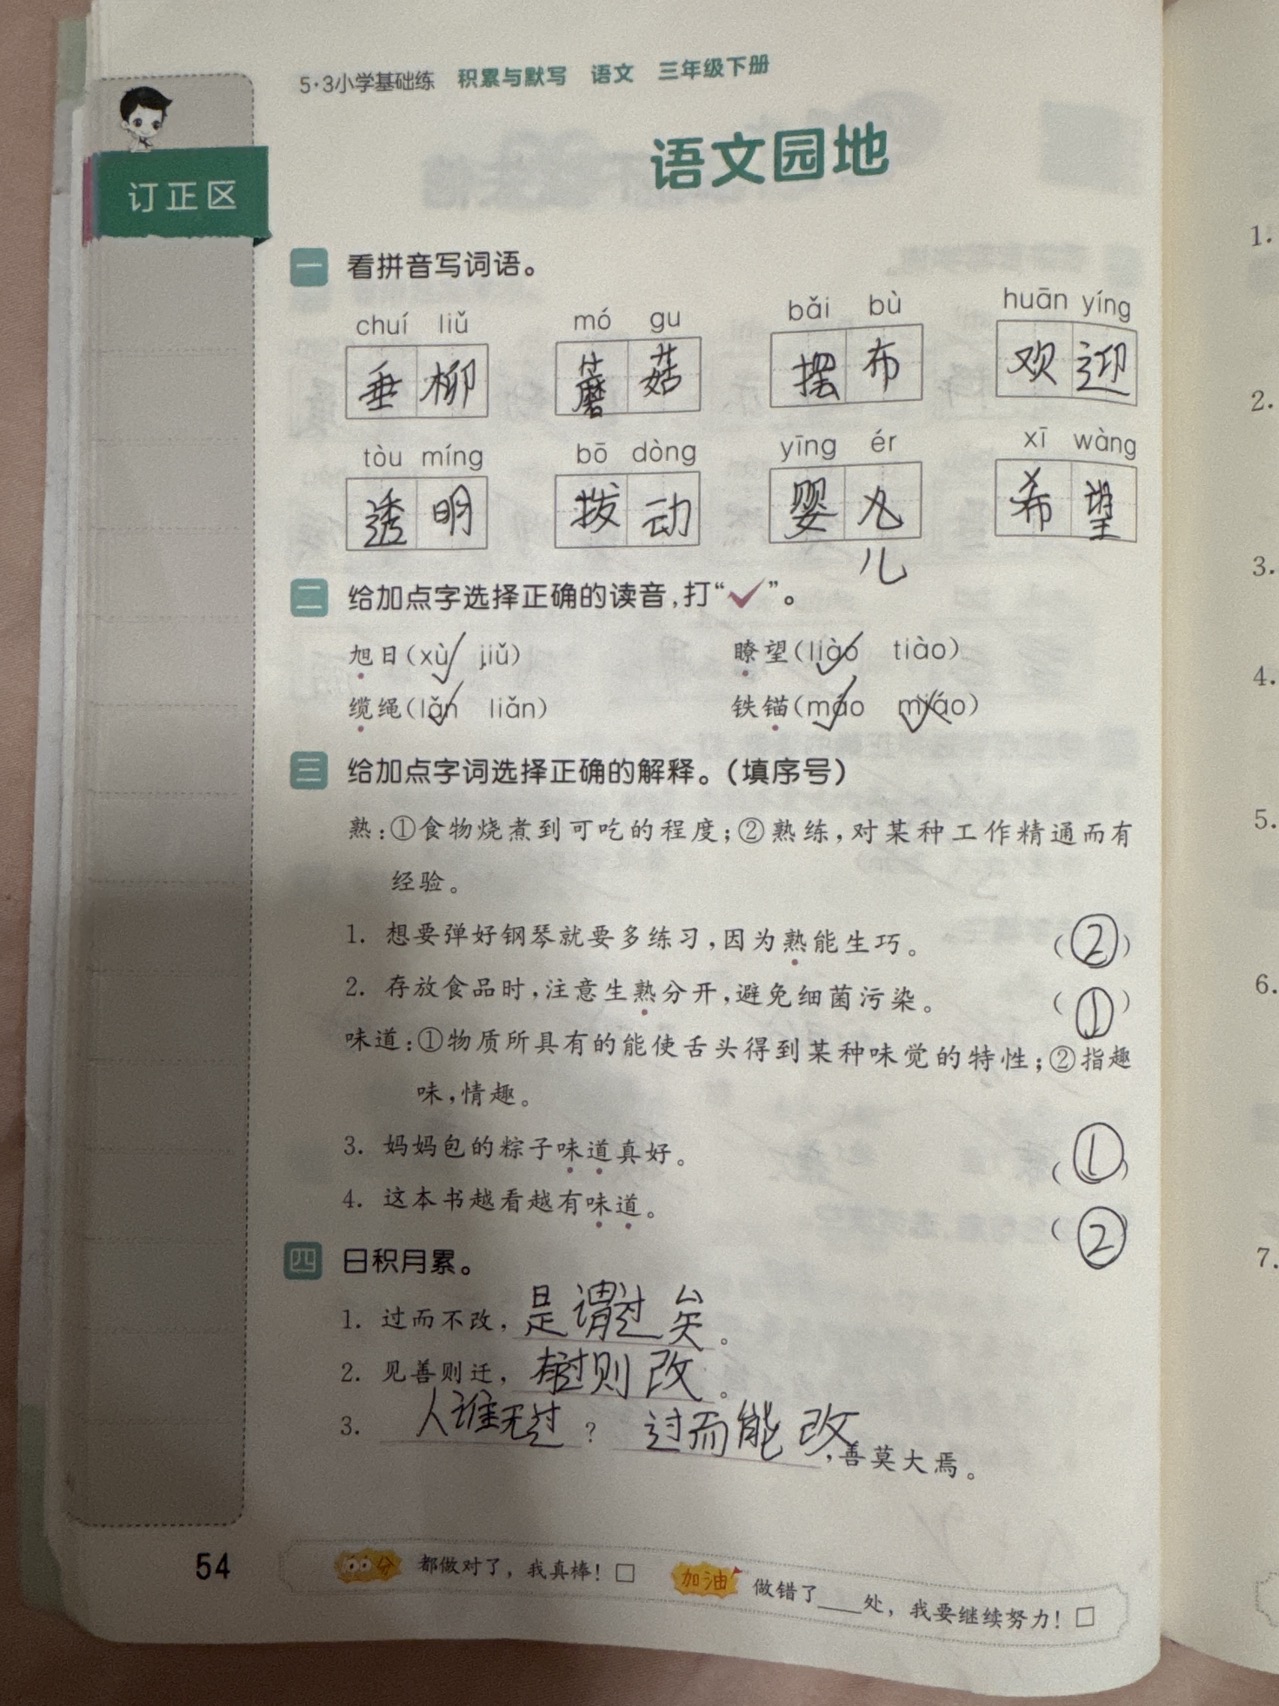 5·3小学基础练 积累与默写 语文 三年级下册
订正区
语文园地
一 看拼音写词语。
chuí liǔ mó gu bǎi bù huān yíng
垂柳 蘑菇 摆布 欢迎
tòu míng bō dòng yīng ér xī wàng
透明 拨动 婴 希望
儿
二 给加点字选择正确的读音,打“✓”。
旭日(xù jiǔ) 瞭望(liào tiào)
缆绳(lǎn liǎn) 铁锚(máo miáo)
三 给加点字词选择正确的解释。(填序号)
熟:①食物烧煮到可吃的程度;②熟练,对某种工作精通而有
经验。
1. 想要弹好钢琴就要多练习,因为熟能生巧。 (②)
2. 存放食品时,注意生熟分开,避免细菌污染。 (①)
味道:①物质所具有的能使舌头得到某种味觉的特性;②指趣
味,情趣。
3. 妈妈包的粽子味道真好。 (①)
4. 这本书越看越有味道。 (②)
四 日积月累。
1. 过而不改,是谓过矣。
2. 见善则迁,有过则改。
3. 人谁无过?过而能改,善莫大焉。
54
100分 都做对了,我真棒!□ 加油 做错了___处,我要继续努力!□
1.
2.
3.
4.
5.
6.
7.